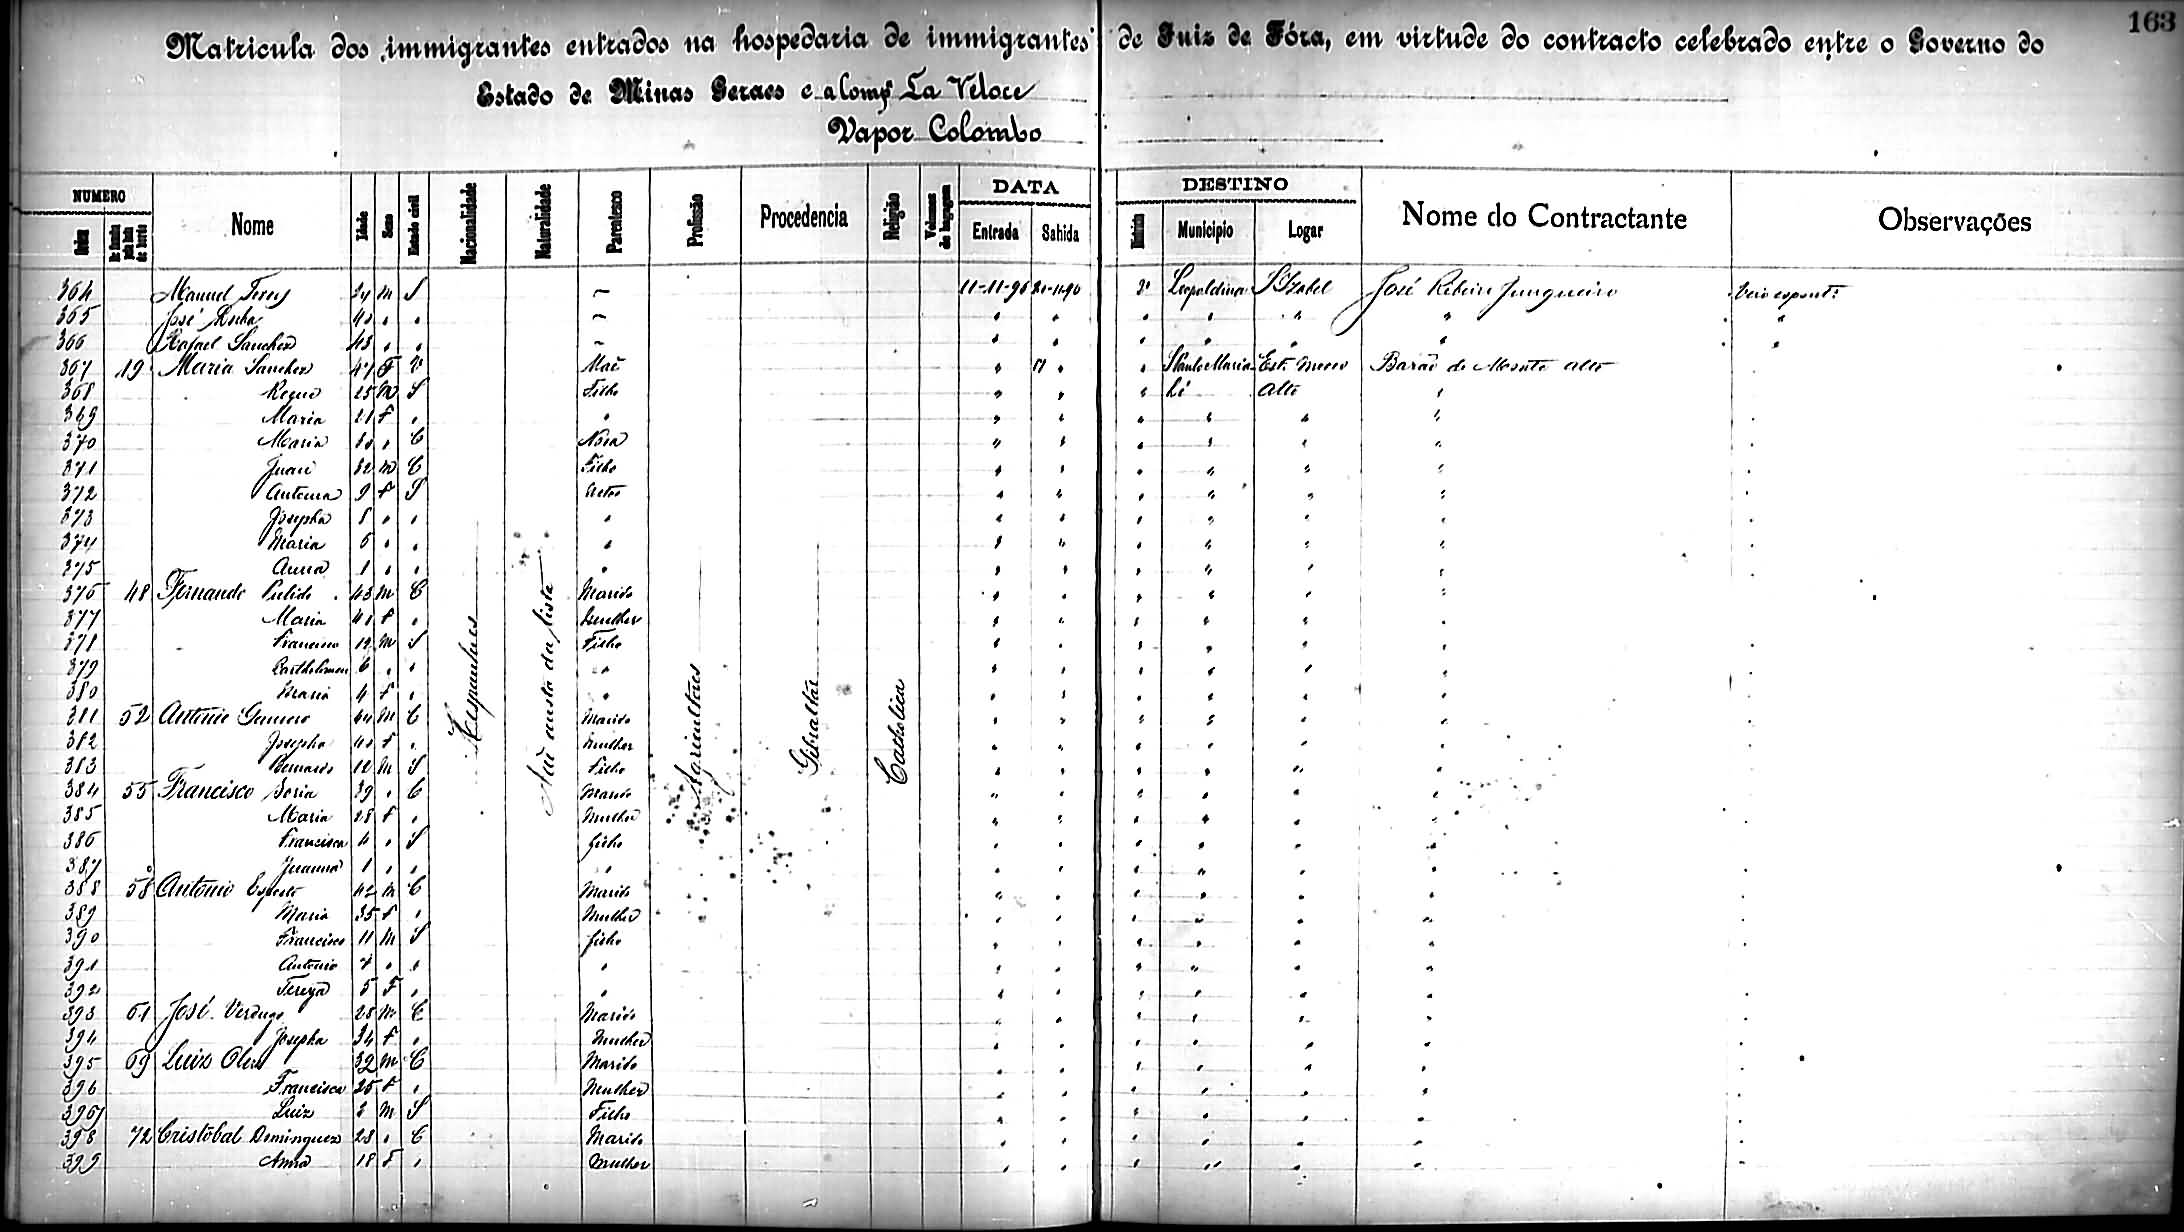 163
Matricula dos immigrantes entrados na hospedaria de immigrantes de Juiz de Fóra, em virtude do contracto celebrado entre o Governo do
Estado de Minas Geraes e a Comp. La Veloce
Vapor Colombo
NUMERO Nome Idade Sexo Estado civil Nacionalidade Naturalidade Parentesco Profissão Procedencia Religião Volumes de bagagem DATA Entrada Sahida DESTINO Municipio Logar Nome do Contractante Observações
Hespanhoes
Não consta da lista
Agricultores
Gibraltar
Catholica
364 Manuel M S — 11-11-96 Leopoldina José Ribeiro Junqueiro Veio espont:
365 José Rocha 40 " " — " " " " " " "
366 Rafael Sanchez 43 " " — " " " " " " "
367 19 Maria Sanchez 47 F V Mãe " " " Barão de Monte Alto
368 25 M S Filho " " " Alto "
369 Maria 21 F " " " " " " " "
370 Maria 30 " C Nora " " " " " "
371 Juan 32 M C Filho " " " " " "
372 Antonia 9 F S Netos " " " " " "
373 Josepha 8 " " " " " " " " "
374 Maria " " " " " " " " "
375 Anna 1 " " " " " " " " "
376 48 Fernando Pulido 43 M C Marido " " " " " "
377 Maria 40 F " Mulher " " " " " "
378 Francisco 12 M S Filho " " " " " "
379 Bartholomeu 6 " " " " " " " " "
380 Maria 4 F " " " " " " " "
381 52 Antonio 44 M C Marido " " " " " "
382 Josepha 40 F " Mulher " " " " " "
383 Bernardo 12 M S Filho " " " " " "
384 55 Francisco Soria 39 " C Marido " " " " " "
385 Maria 28 F " Mulher " " " " " "
386 Francisca 4 " S filho " " " " " "
387 Juanna 1 " " " " " " " " "
388 58 Antonio 42 M C Marido " " " " " "
389 Maria 35 F " Mulher " " " " " "
390 Francisco 11 M S filho " " " " " "
391 Antonio 7 " " " " " " " " "
392 Tereza 5 F " " " " " " " "
393 61 José Verdugo 28 M C Marido " " " " " "
394 Josepha 34 F " Mulher " " " " " "
395 69 Luiz 32 M C Marido " " " " " "
396 Francisca 25 F " Mulher " " " " " "
397 Luiz 2 M S Filho " " " " " "
398 72 Cristobal Dominguez 28 " C Marido " " " " " "
399 Anna 18 F " Mulher " " " " " "